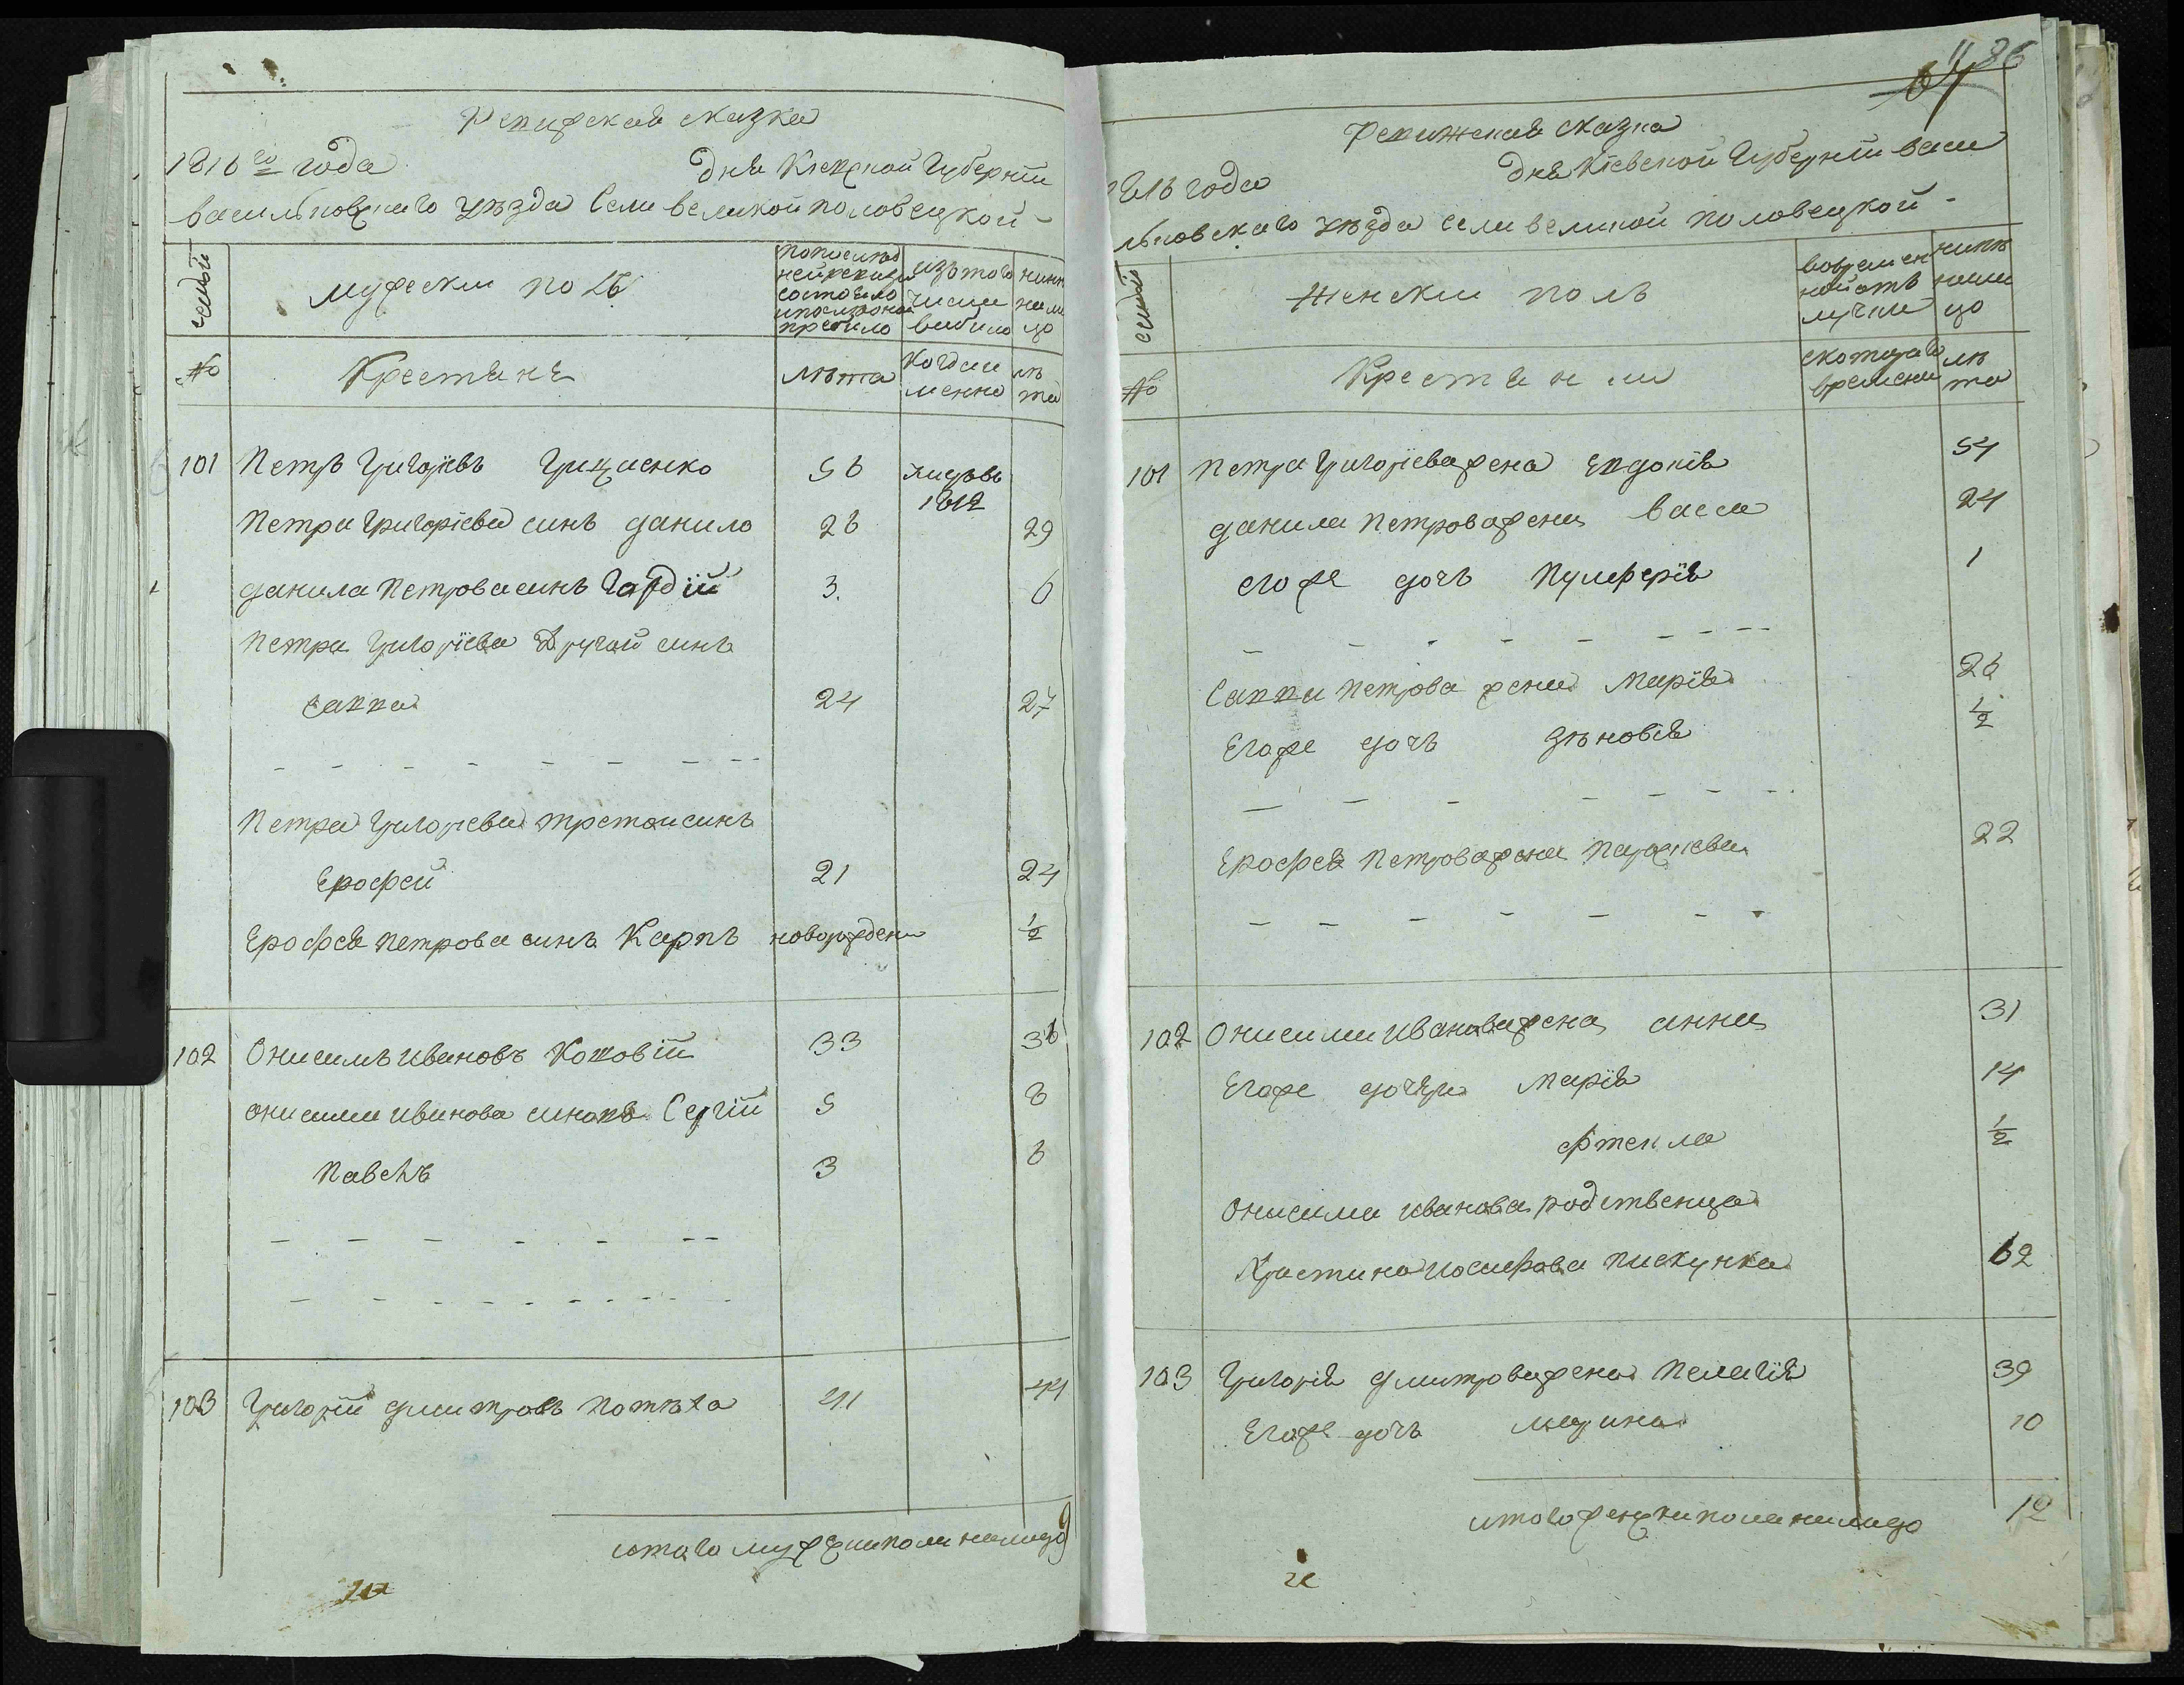 Ревизская сказка
1816го года дня Кіевской Губерніи
васильковскаго уѣзда Села великой половецкой -
семьи
мужески полъ
по последней ревизіи состояло и после оной прибыло
изъ того числа выбило
нине на лицо
№
Крестяне
лѣта
Когда именно
лѣта
101 Петръ Григорїевъ Гриценко 56 1812
Петра Григорїева синъ данило 26 29
данила Петрова синъ Гордїй 3 6
Петра Григорїева Другой синъ
сакка 24 27
Петра Григорїева третои синъ
Ерофей 21 24
Ерофея петрова синъ Карпъ новорожден ½
102 Онисимъ Ивановъ Коковїй 33 36
Онисима Иванова синовя Сергїй 5 8
Павелъ 3 6
103 Григорїй дмитровъ Потѣха 41 44
итого мужеска пола налицо 9
86
Ревижская сказка
1816 года дня Кіевской Губернїи васи
льковскаго уѣзда села великой половецкой -
семьи
женски полъ
во временной отлучки
нинѣ налицо
№
Крестянки
скотораго времени
лѣта
101 Петра Григорїева жена Евдокїя 54
данила Петрова жена васса 24
егоже дочь Пулхерїя 1
Сакки Петрова жена Марїя 26
Егоже дочь Зѣновїя ½
Ерофея Петрова жена Параскева 22
102 Онисима Иванова жена анна 31
Егоже дочери Марїя 14
Фтекла ½
Онисима Иванова родственица
Христина Иосифова пискунка 62
103 Григорїя дмитрова жена Пелагїя 39
Егоже дочь марина 10
итого женска пола налицо 12